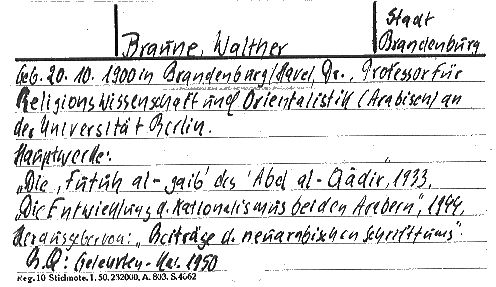 Stadt
Braune, Walther Brandenburg
Geb. 20. 10. 1900 in Brandenburg/Havel, Dr., Professor für
Religionswissenschaft und Orientalistik (Arabisch) an
der Universität Berlin.
Hauptwerke:
„Die ‚Futūh al-gaib' des 'Abd al-Qādir, 1933,
„Die Entwicklung d. Nationalismus bei den Arabern", 1944,
Herausgeber von: „Beiträge d. neuarabischen Schrifttums".
B.Q.: Gelehrten-Kal. 1950
Reg. 10 Stichnote. 1. 50. 232000. A. 803. S. 4662